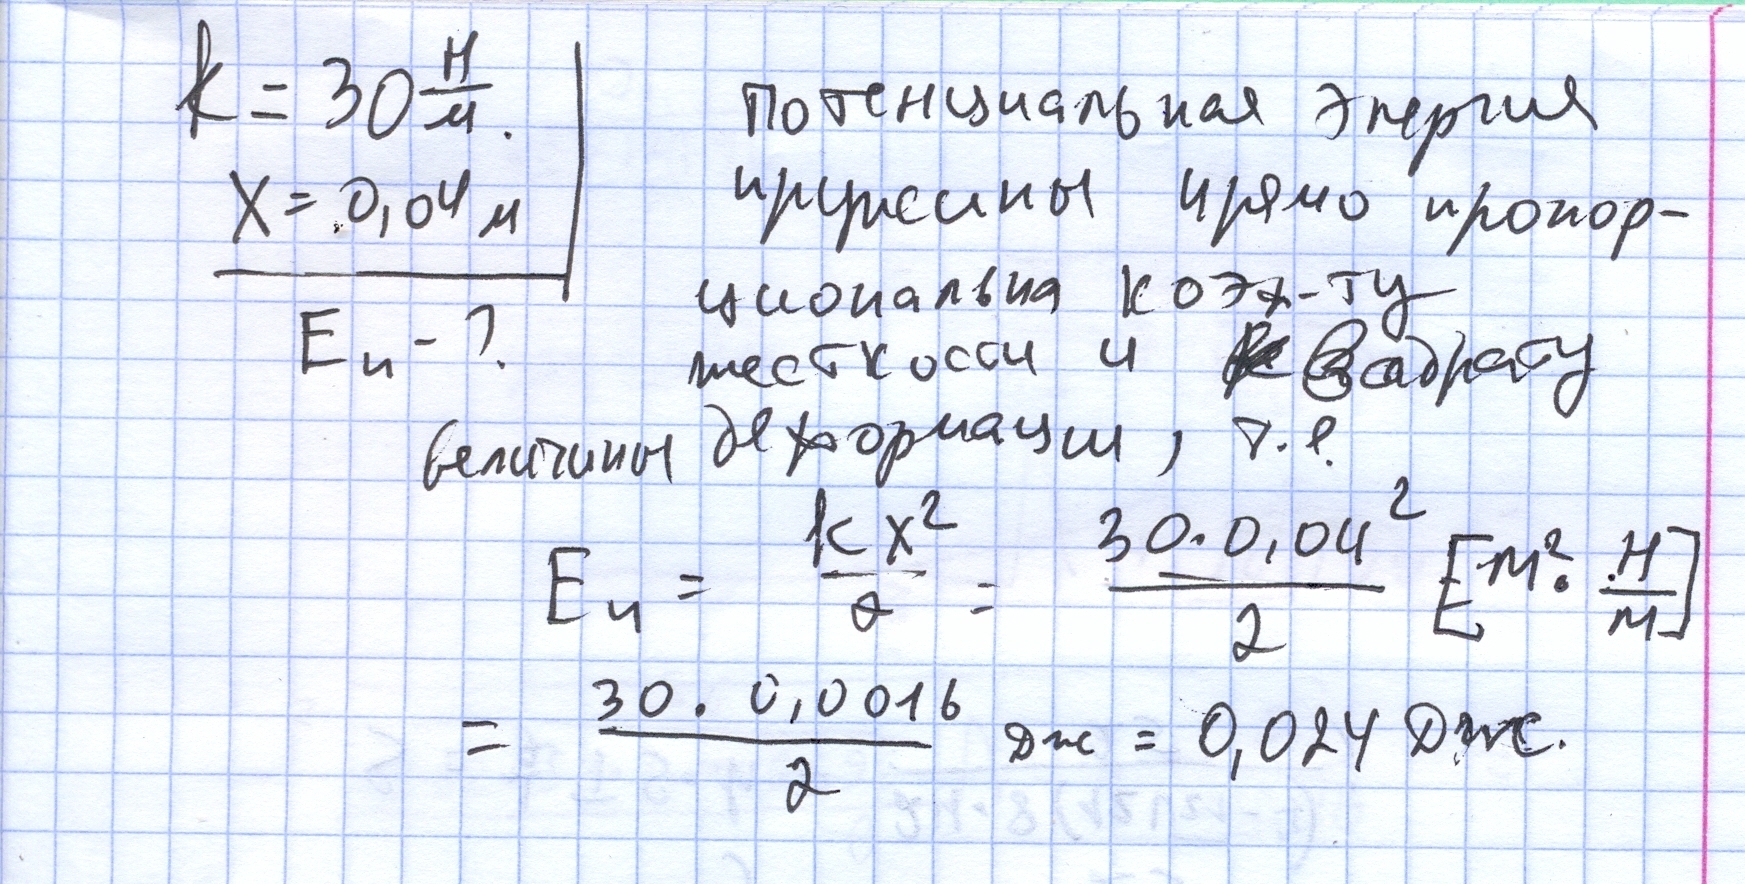 k = 30 Н/м.
x = 0,04 м
Eп - ?
потенциальная энергия
пружины прямо пропор-
циональна коэф-ту
жесткости и квадрату
величины деформации, т.е.
Eп = kx²/2 = 30·0,04²/2 [м²·Н/м]
= 30·0,0016/2 Дж = 0,024 Дж.